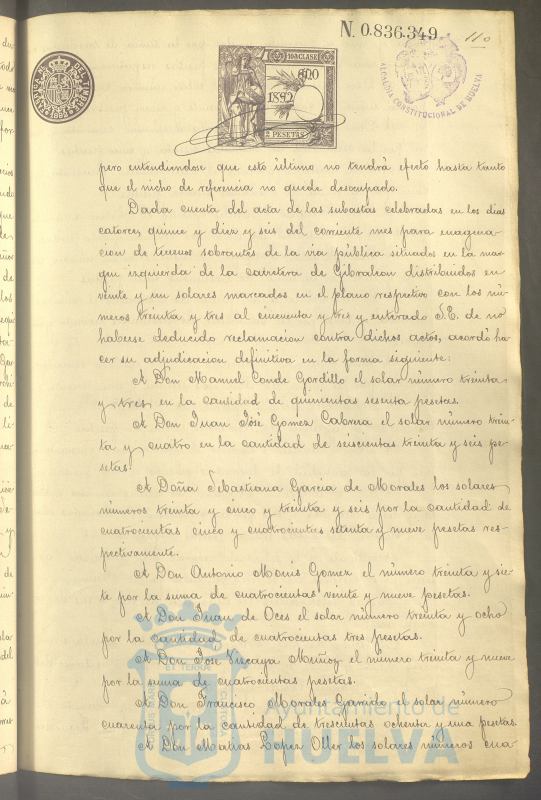 N. 0.836.349
110
10ª CLASE
1892
2 PESETAS
DEL TIMBRE
1892
ALCALDIA CONSTITUCIONAL DE HUELVA
pero entendiendose que esto último no tendrá efecto hasta tanto
que el nicho de referencia no quede desocupado.
Dada cuenta del acta de las subastas celebradas en los dias
catorce, quince y diez y seis del corriente mes para enagena-
cion de terrenos sobrantes de la via pública situados en la mar-
gen izquierda de la carretera de Gibraleon distribuidos en
veinte y un solares marcados en el plano respectivo con los nú-
meros treinta y tres al cincuenta y tres y enterado S.E. de no
haberse deducido reclamacion contra dichos actos, acordó ha-
cer su adjudicacion definitiva en la forma siguiente:
A Don Manuel Conde Gordillo el solar número treinta
y tres en la cantidad de quinientas sesenta pesetas.
A Don Juan José Gomez Cabrera el solar número trein-
ta y cuatro en la cantidad de seiscientas treinta y seis pe-
setas.
A Doña Sebastiana Garcia de Morales los solares
números treinta y cinco y treinta y seis por la cantidad de
cuatrocientas cinco y cuatrocientas setenta y nueve pesetas res-
pectivamente.
A Don Antonio Monis Gomez el número treinta y sie-
te por la suma de cuatrocientas veinte y nueve pesetas.
A Don Juan de Oces el solar número treinta y ocho
por la cantidad de cuatrocientas tres pesetas.
A Don José Vizcaya Muñoz el número treinta y nueve
por la suma de cuatrocientas pesetas.
A Don Francisco Morales Garrido el solar número
cuarenta por la cantidad de trescientas ochenta y una pesetas.
A Don Matias Lopez Oller los solares números cua-
Ayuntamiento de
HUELVA